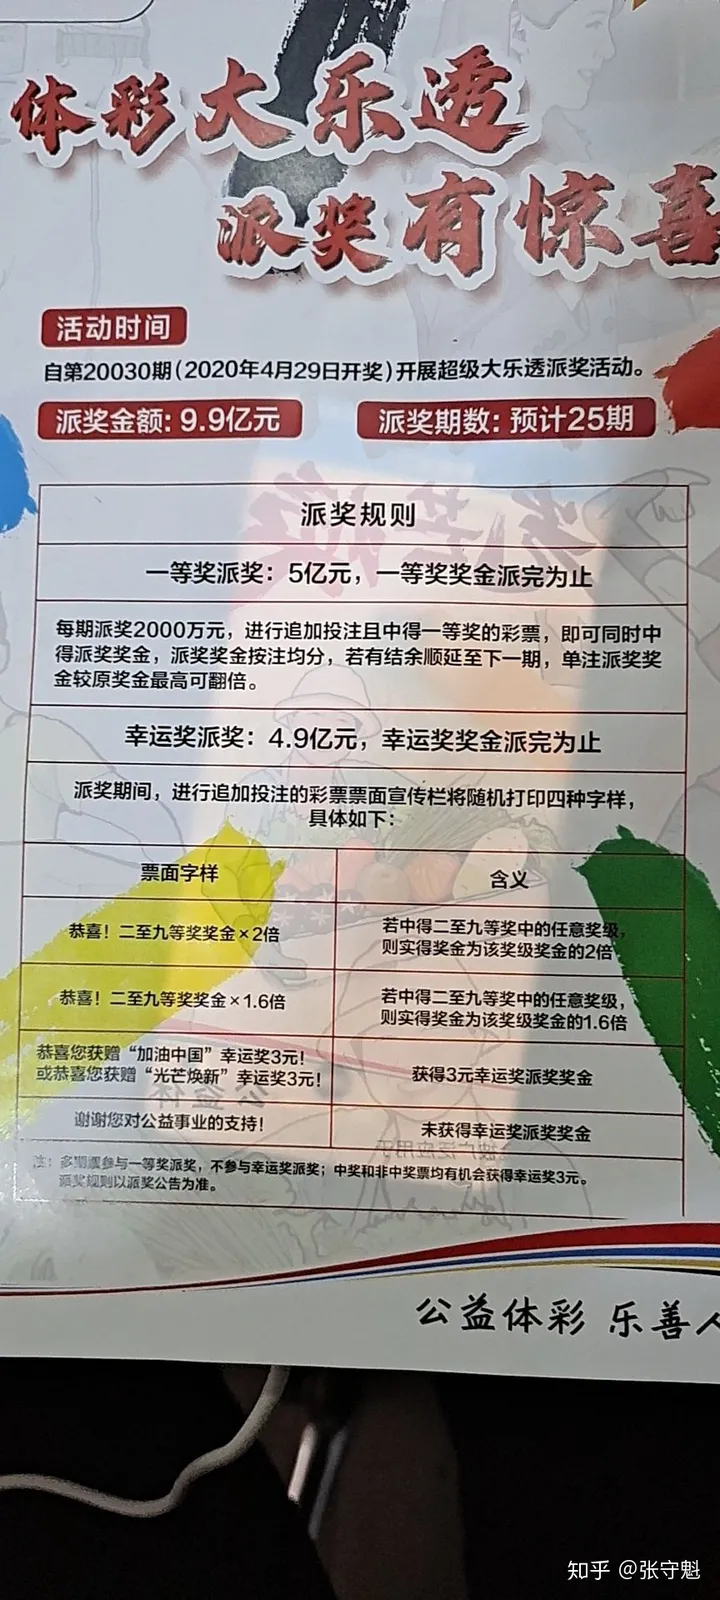 体彩大乐透
派奖有惊喜
活动时间
自第20030期(2020年4月29日开奖)开展超级大乐透派奖活动。
派奖金额:9.9亿元
派奖期数:预计25期
派奖规则
一等奖派奖:5亿元,一等奖奖金派完为止
每期派奖2000万元,进行追加投注且中得一等奖的彩票,即可同时中
得派奖奖金,派奖奖金按注均分,若有结余顺延至下一期,单注派奖奖
金较原奖金最高可翻倍。
幸运奖派奖:4.9亿元,幸运奖奖金派完为止
派奖期间,进行追加投注的彩票票面宣传栏将随机打印四种字样,
具体如下:
票面字样
含义
恭喜!二至九等奖奖金×2倍
若中得二至九等奖中的任意奖级,
则实得奖金为该奖级奖金的2倍
恭喜!二至九等奖奖金×1.6倍
若中得二至九等奖中的任意奖级,
则实得奖金为该奖级奖金的1.6倍
恭喜您获赠“加油中国”幸运奖3元!
或恭喜您获赠“光芒焕新”幸运奖3元!
获得3元幸运奖派奖奖金
谢谢您对公益事业的支持!
未获得幸运奖派奖奖金
注:多期票参与一等奖派奖,不参与幸运奖派奖;中奖和非中奖票均有机会获得幸运奖3元。
派奖规则以派奖公告为准。
公益体彩 乐善人
知乎 @张守魁